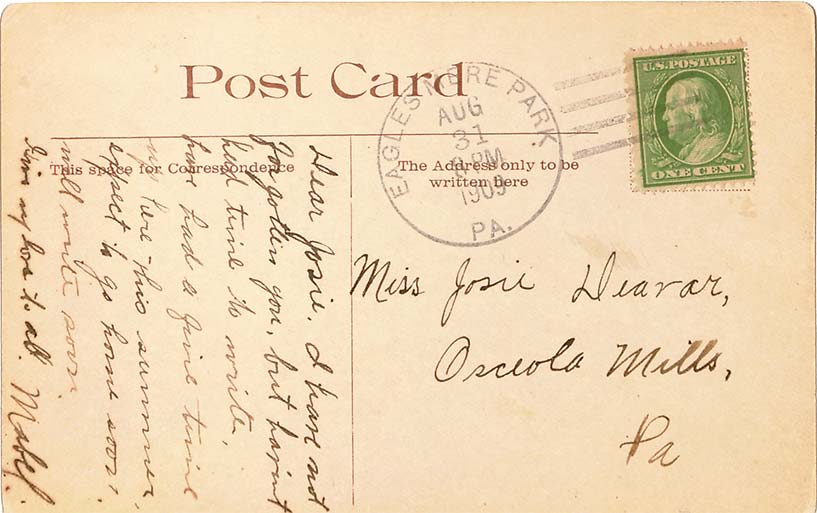 Post Card
EAGLES MERE PARK.
AUG
31
8 PM
1909
PA.
U.S. POSTAGE
ONE CENT
This space for Correspondence
The Address only to be
written here
Dear Josie. I have not
forgotten you, but havint
had time to write,
have had a fine time
here this summer,
expect to go home soon.
will write soon.
to all. Mabel.
Miss Josie Deavar,
Osceola Mills,
Pa